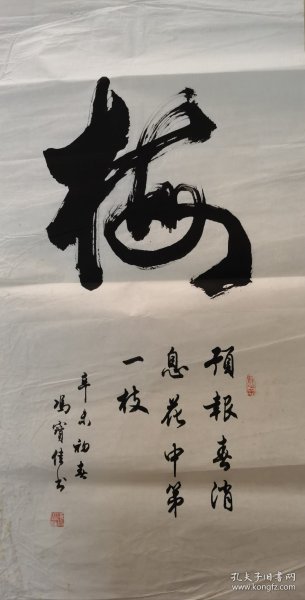 梅
预报春消
息花中第
一枝
辛未初春
冯宝佳书
孔夫子旧书网
www.kongfz.com